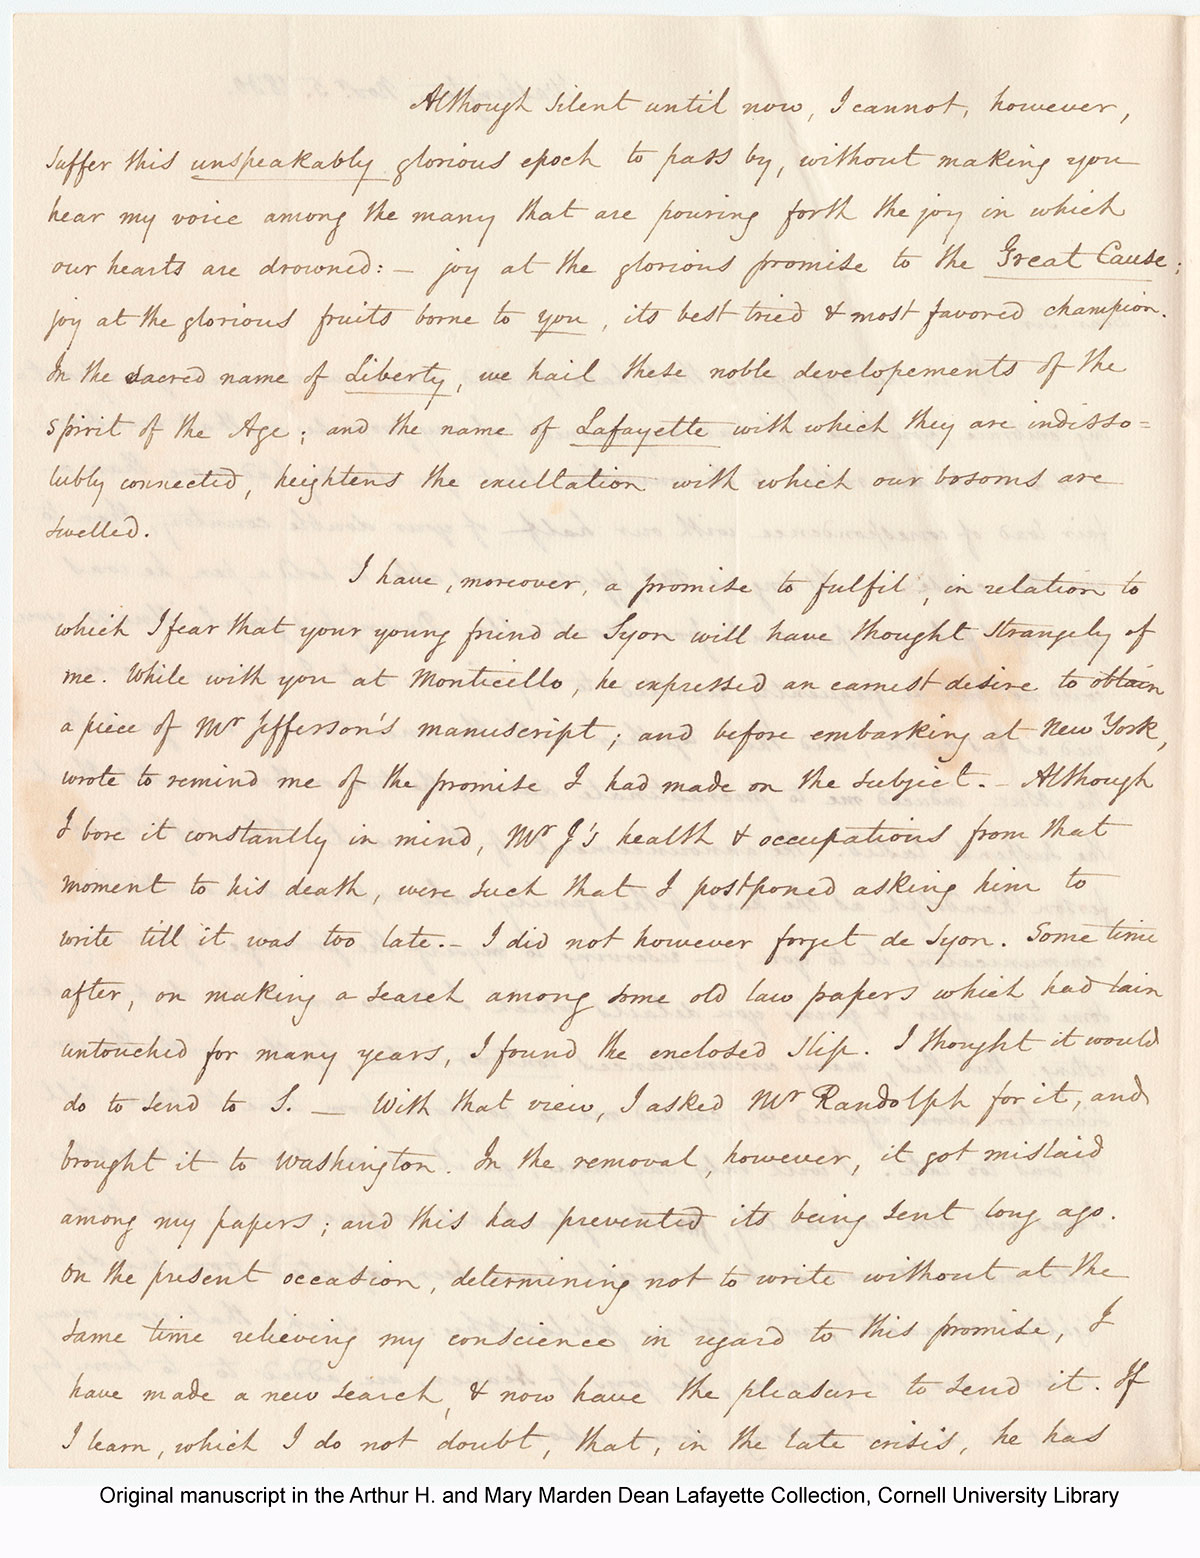 Although silent until now, I cannot, however,
suffer this unspeakably glorious epoch to pass by, without making you
hear my voice among the many that are pouring forth the joy in which
our hearts are drowned: – joy at the glorious promise to the Great Cause;
joy at the glorious fruits borne to you, its best tried & most favored champion.
In the sacred name of Liberty, we hail these noble developements of the
spirit of the Age; and the name of Lafayette with which they are indisso=
lubly connected, heightens the exultation with which our bosoms are
swelled.
I have, moreover, a promise to fulfil, in relation to
which I fear that your young friend de Syon will have thought strangely of
me. While with you at Monticello, he expressed an earnest desire to obtain
a piece of Mr Jefferson's manuscript; and before embarking at New York,
wrote to remind me of the promise I had made on the subject. – Although
I bore it constantly in mind, Mr J's health & occupations from that
moment to his death, were such that I postponed asking him to
write till it was too late. – I did not however forget de Syon. Some time
after, on making a search among some old law papers which had lain
untouched for many years, I found the enclosed slip. I thought it would
do to send to S. – With that view, I asked Mr Randolph for it, and
brought it to Washington. In the removal, however, it got mislaid
among my papers; and this has prevented its being sent long ago.
On the present occasion, determining not to write without at the
same time relieving my conscience in regard to this promise, I
have made a new search, & now have the pleasure to send it. If
I learn, which I do not doubt, that, in the late crisis, he has
Original manuscript in the Arthur H. and Mary Marden Dean Lafayette Collection, Cornell University Library